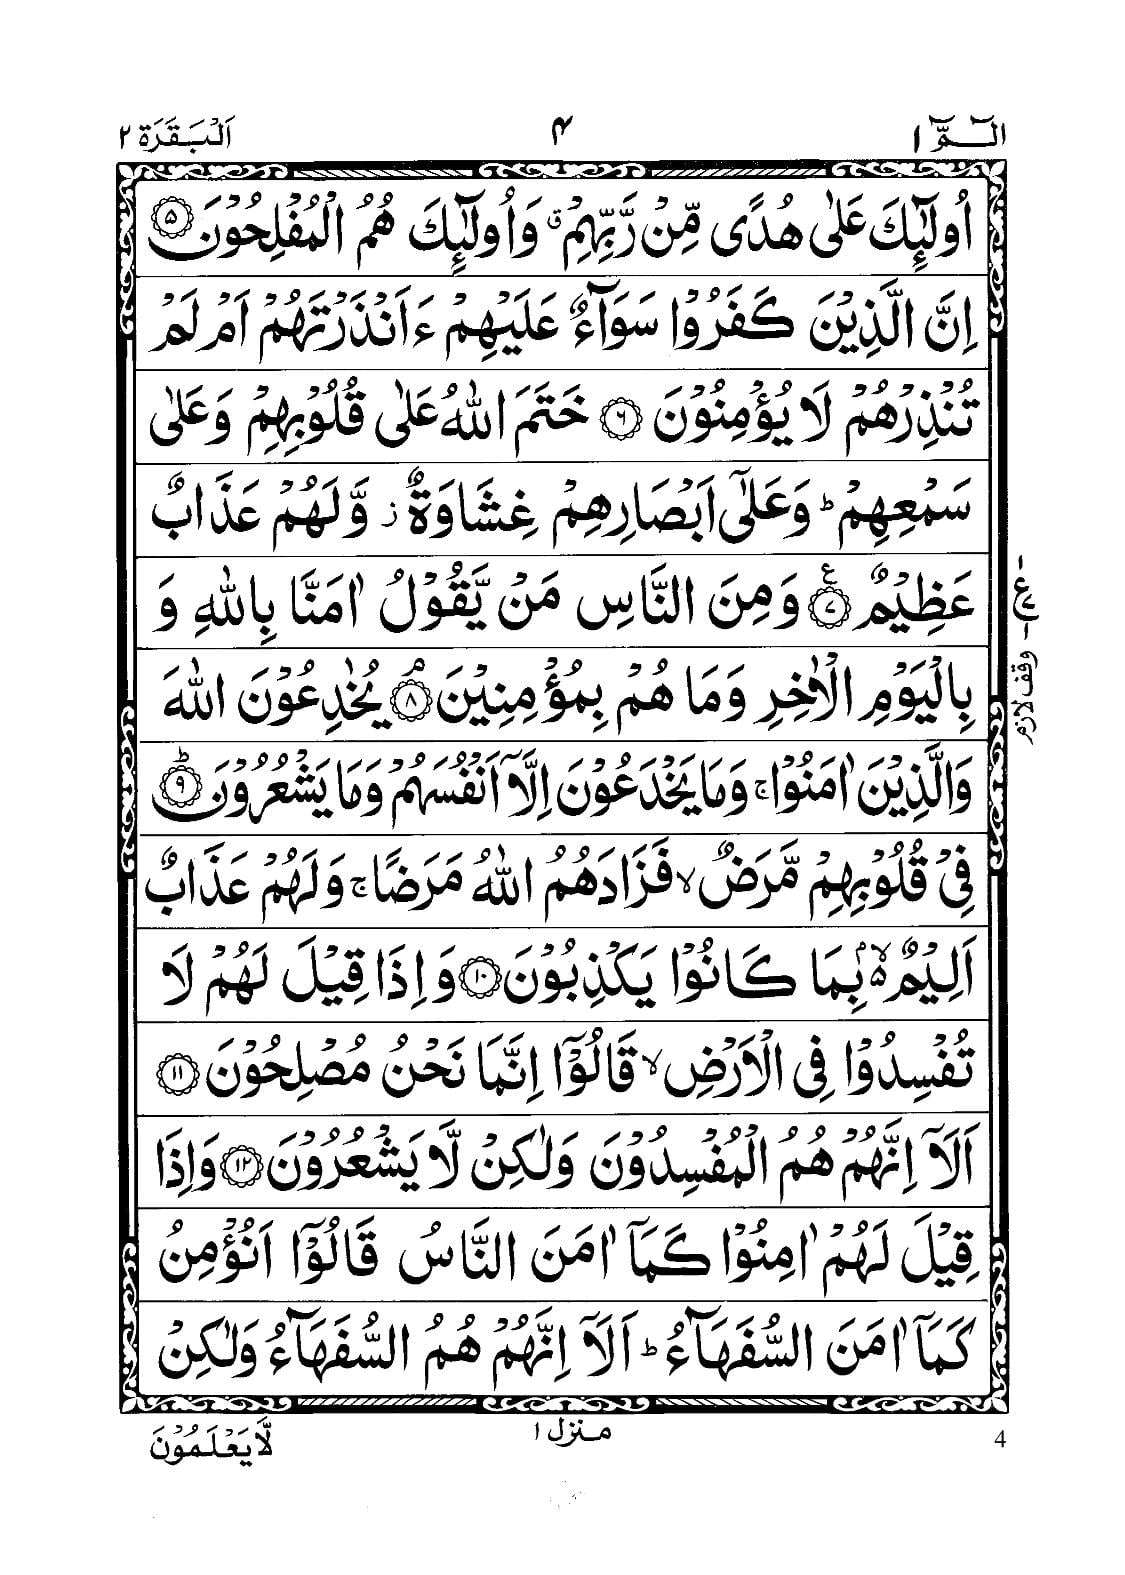 الٓمّٓ ١ ٤ اَلْبَقَرَة ٢
اُولٰٓئِكَ عَلٰى هُدًى مِّنْ رَّبِّهِمْ ۗ وَاُولٰٓئِكَ هُمُ الْمُفْلِحُوْنَ ۝٥
اِنَّ الَّذِيْنَ كَفَرُوْا سَوَآءٌ عَلَيْهِمْ ءَاَنْذَرْتَهُمْ اَمْ لَمْ
تُنْذِرْهُمْ لَا يُؤْمِنُوْنَ ۝٦ خَتَمَ اللّٰهُ عَلٰى قُلُوْبِهِمْ وَعَلٰى
سَمْعِهِمْ ؕ وَعَلٰٓى اَبْصَارِهِمْ غِشَاوَةٌ ز وَّلَهُمْ عَذَابٌ
عَظِيْمٌ ۝٧ ع وَمِنَ النَّاسِ مَنْ يَّقُوْلُ اٰمَنَّا بِاللّٰهِ وَ
بِالْيَوْمِ الْاٰخِرِ وَمَا هُمْ بِمُؤْمِنِيْنَ ۘ ۝٨ يُخٰدِعُوْنَ اللّٰهَ
وَالَّذِيْنَ اٰمَنُوْا ۚ وَمَا يَخْدَعُوْنَ اِلَّآ اَنْفُسَهُمْ وَمَا يَشْعُرُوْنَ ؕ ۝٩
فِيْ قُلُوْبِهِمْ مَّرَضٌ ۙ فَزَادَهُمُ اللّٰهُ مَرَضًا ۚ وَلَهُمْ عَذَابٌ
اَلِيْمٌ ۵ۙ بِمَا كَانُوْا يَكْذِبُوْنَ ۝١٠ وَاِذَا قِيْلَ لَهُمْ لَا
تُفْسِدُوْا فِى الْاَرْضِ ۙ قَالُوْٓا اِنَّمَا نَحْنُ مُصْلِحُوْنَ ۝١١
اَلَآ اِنَّهُمْ هُمُ الْمُفْسِدُوْنَ وَلٰكِنْ لَّا يَشْعُرُوْنَ ۝١٢ وَاِذَا
قِيْلَ لَهُمْ اٰمِنُوْا كَمَآ اٰمَنَ النَّاسُ قَالُوْٓا اَنُؤْمِنُ
كَمَآ اٰمَنَ السُّفَهَآءُ ؕ اَلَآ اِنَّهُمْ هُمُ السُّفَهَآءُ وَلٰكِنْ
لَّا يَعْلَمُوْنَ
منزل ١
4
وقف لازم